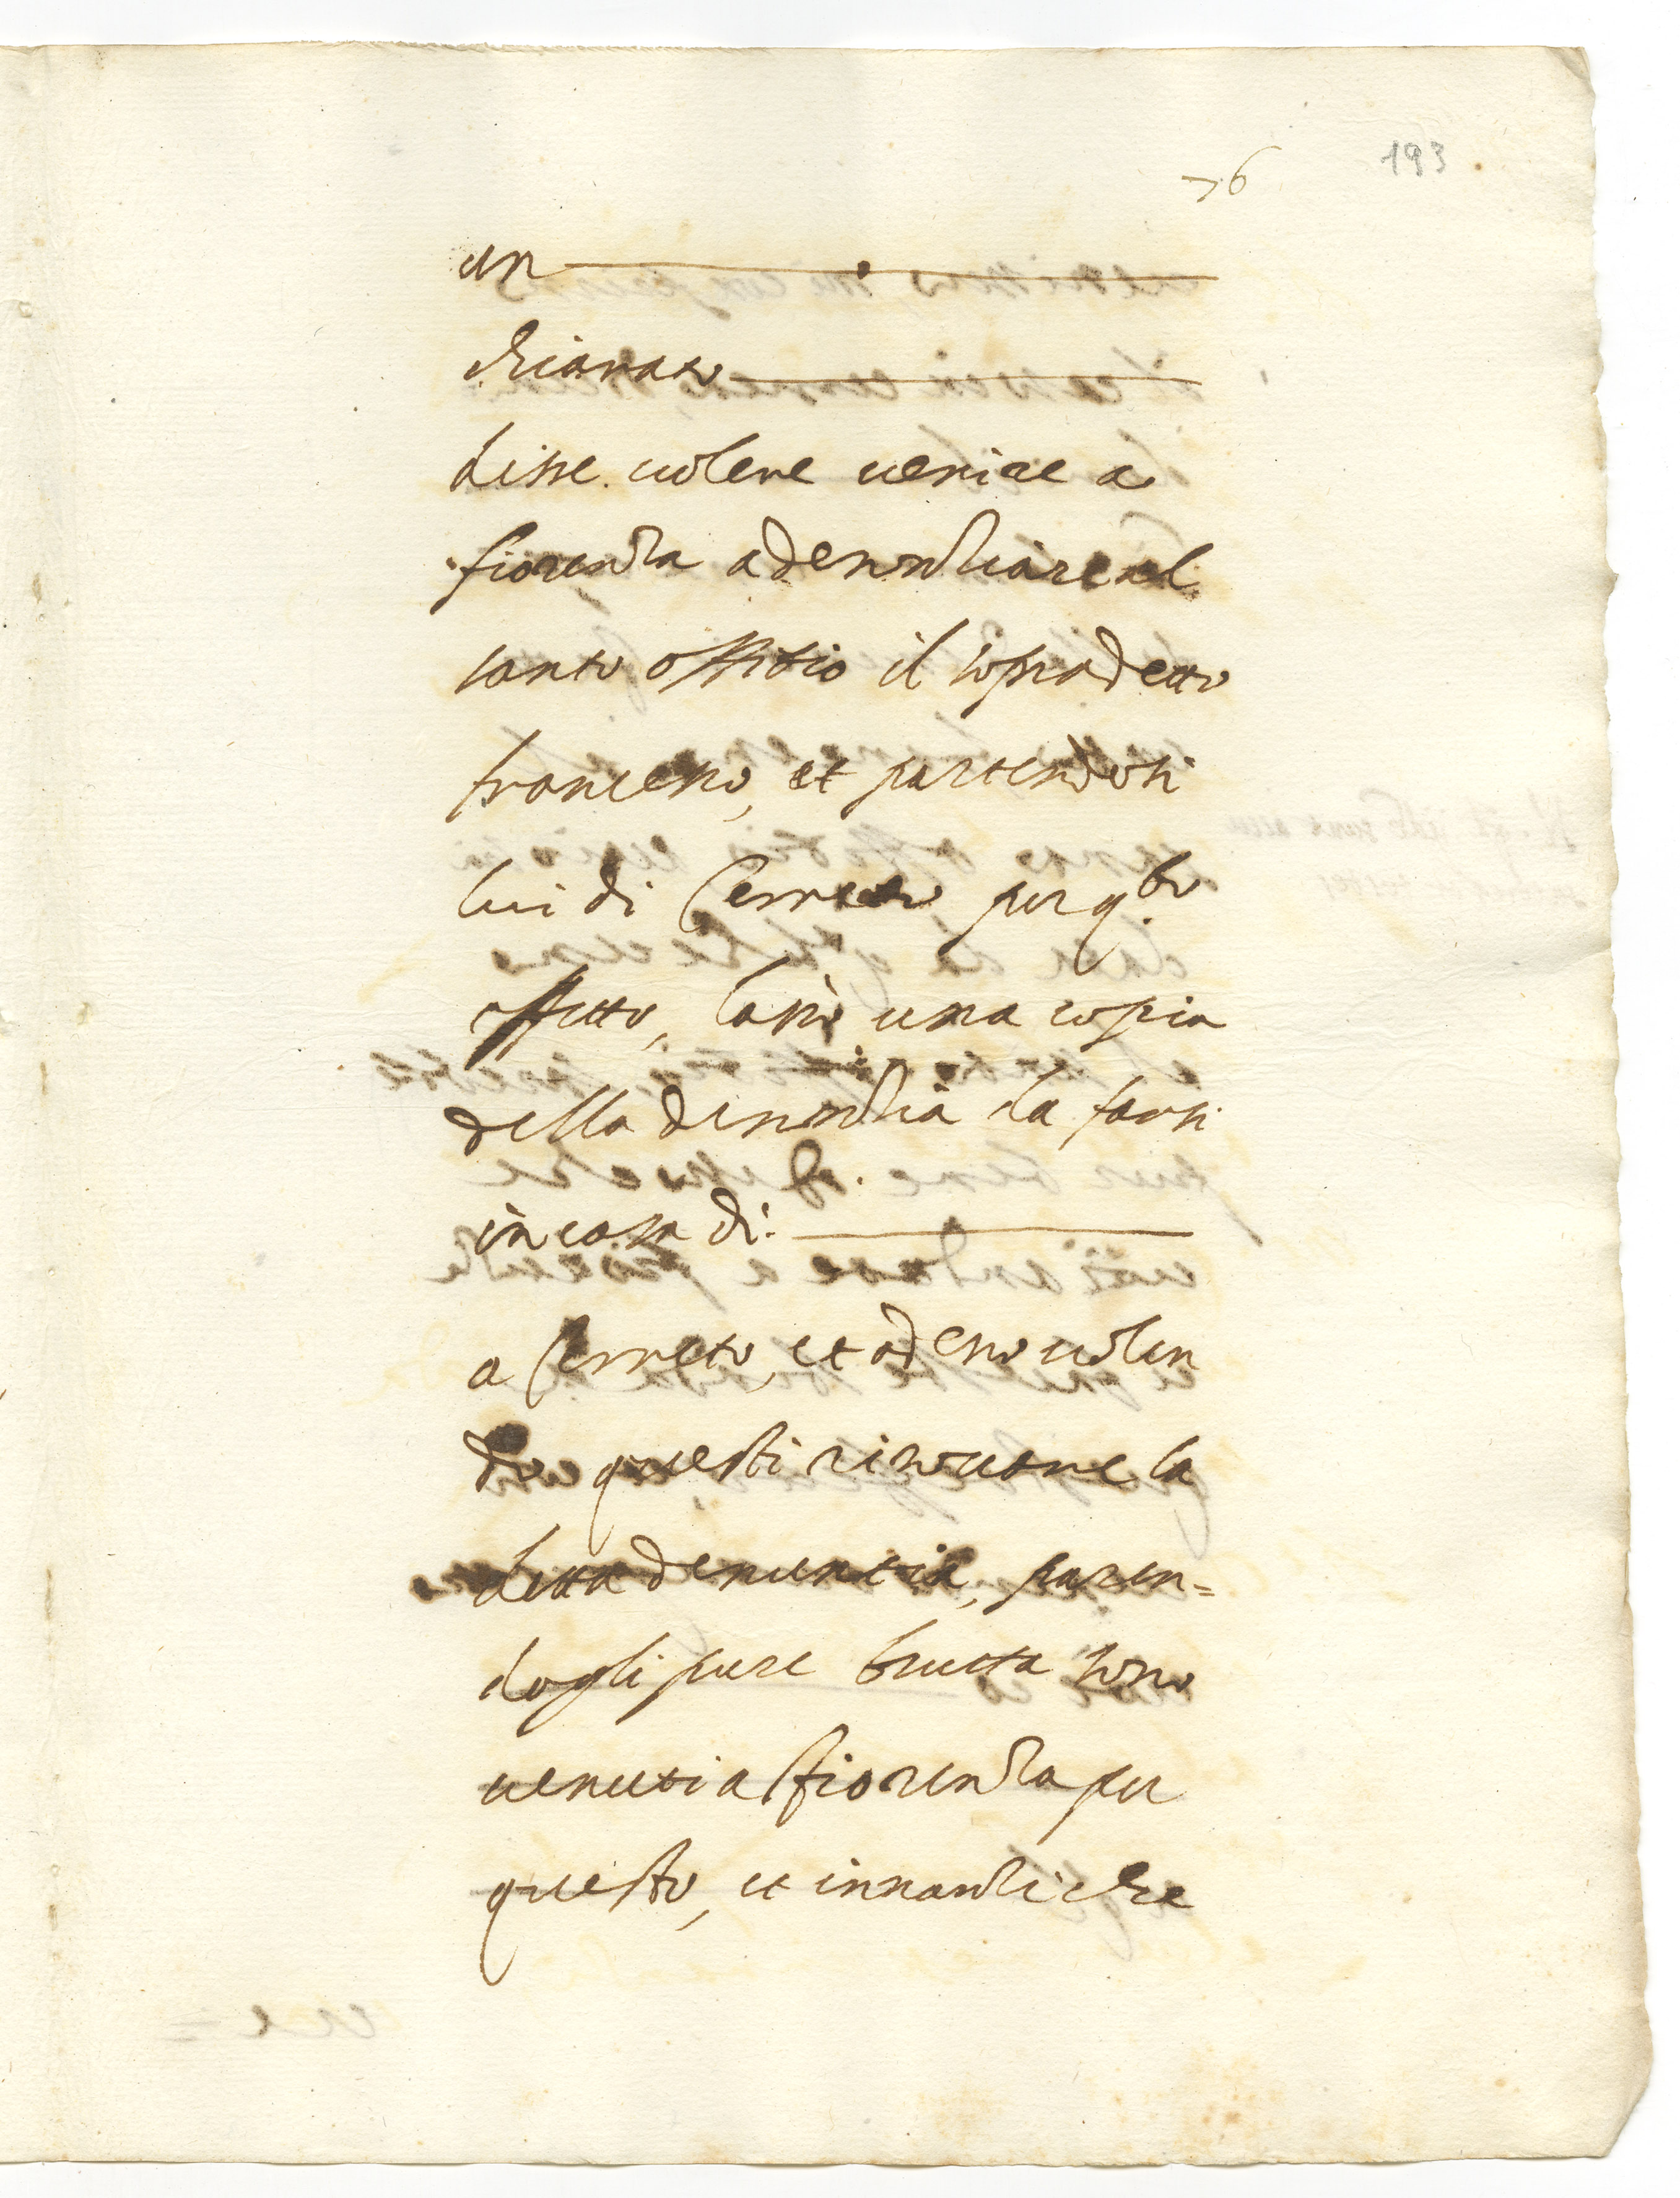 76
193
un
chiamato
disse volere venire a
fiorenza a denonziare al
santo offitio il sopradetto
francesco, et partendosi
lui di Cerreto per q.sto
effetto, lasciò una copia
della denonzia da farsi
in casa di.
a Cerreto, et adesso volen
do questi ricevere la
detta denuntia, paren=
dogli pure brutta sono
venuti a fiorenza per
questo, et innanzi che